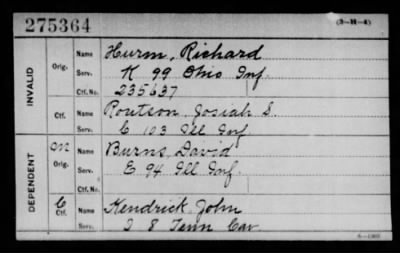 275364
(3-H-4)
INVALID
Orig.
Name Hurm, Richard
Serv. K 99 Ohio Inf.
Ctf. No. 235637
Ctf.
Name Poutson, Josiah S.
Serv. C 103 Ill Inf.
DEPENDENT
Orig.
Name Burns, David
Serv. E 94 Ill Inf.
Ctf. No.
C
Ctf.
Name Kendrick, John
Serv. I 8 Tenn Cav.